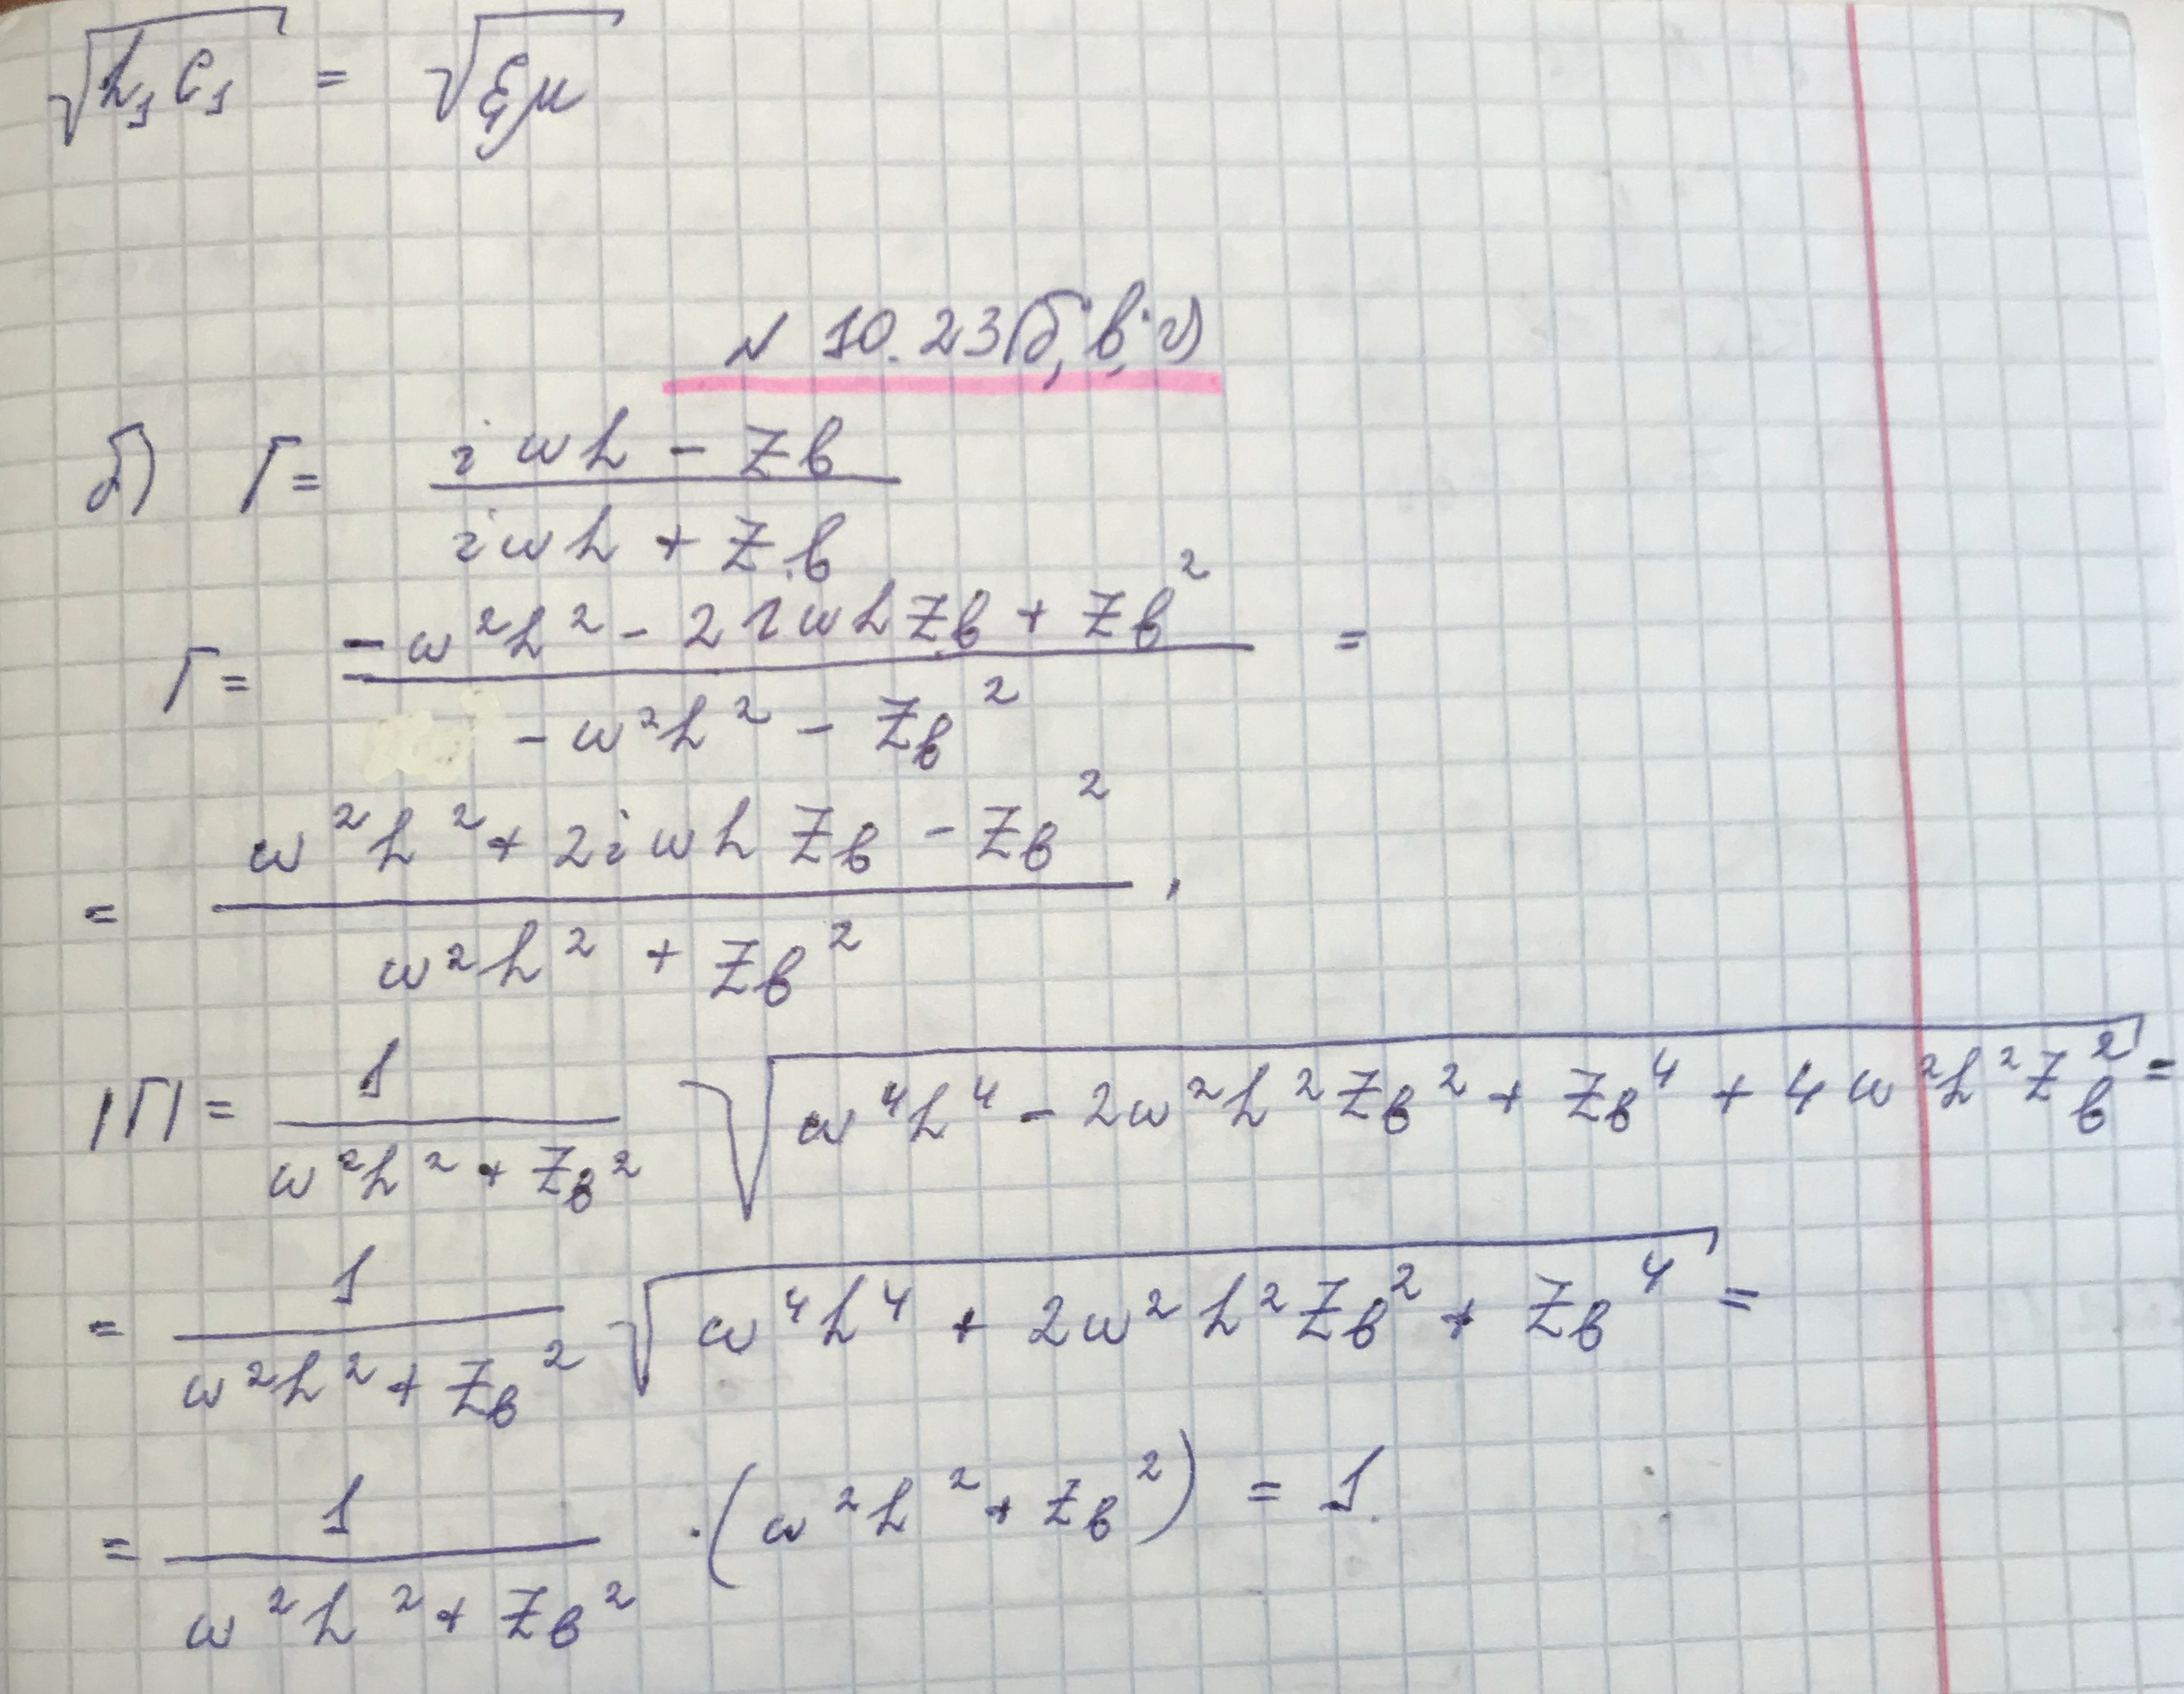 √(L₁C₁) = √(εμ)
№ 10.23(б, в, г)
б) Γ = (iωL - Zв) / (iωL + Zв)
Γ = (-ω²L² - 2iωLZв + Zв²) / (-ω²L² - Zв²) =
= (ω²L² + 2iωLZв - Zв²) / (ω²L² + Zв²),
|Γ| = 1 / (ω²L² + Zв²) √(ω⁴L⁴ - 2ω²L²Zв² + Zв⁴ + 4ω²L²Zв²) =
= 1 / (ω²L² + Zв²) √(ω⁴L⁴ + 2ω²L²Zв² + Zв⁴) =
= 1 / (ω²L² + Zв²) · (ω²L² + Zв²) = 1.